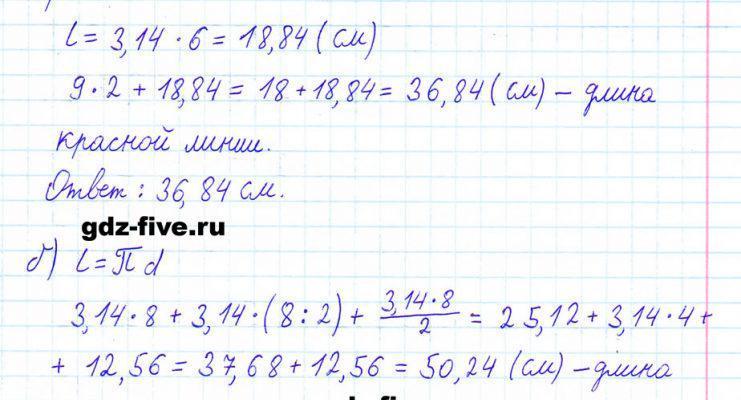 l = 3,14 · 6 = 18,84 (см)
9 · 2 + 18,84 = 18 + 18,84 = 36,84 (см) – длина
красной линии.
Ответ: 36,84 см.
gdz-five.ru
б) l = π d
3,14 · 8 + 3,14 · (8 : 2) + 3,14 · 8 / 2 = 25,12 + 3,14 · 4 +
+ 12,56 = 37,68 + 12,56 = 50,24 (см) – длина